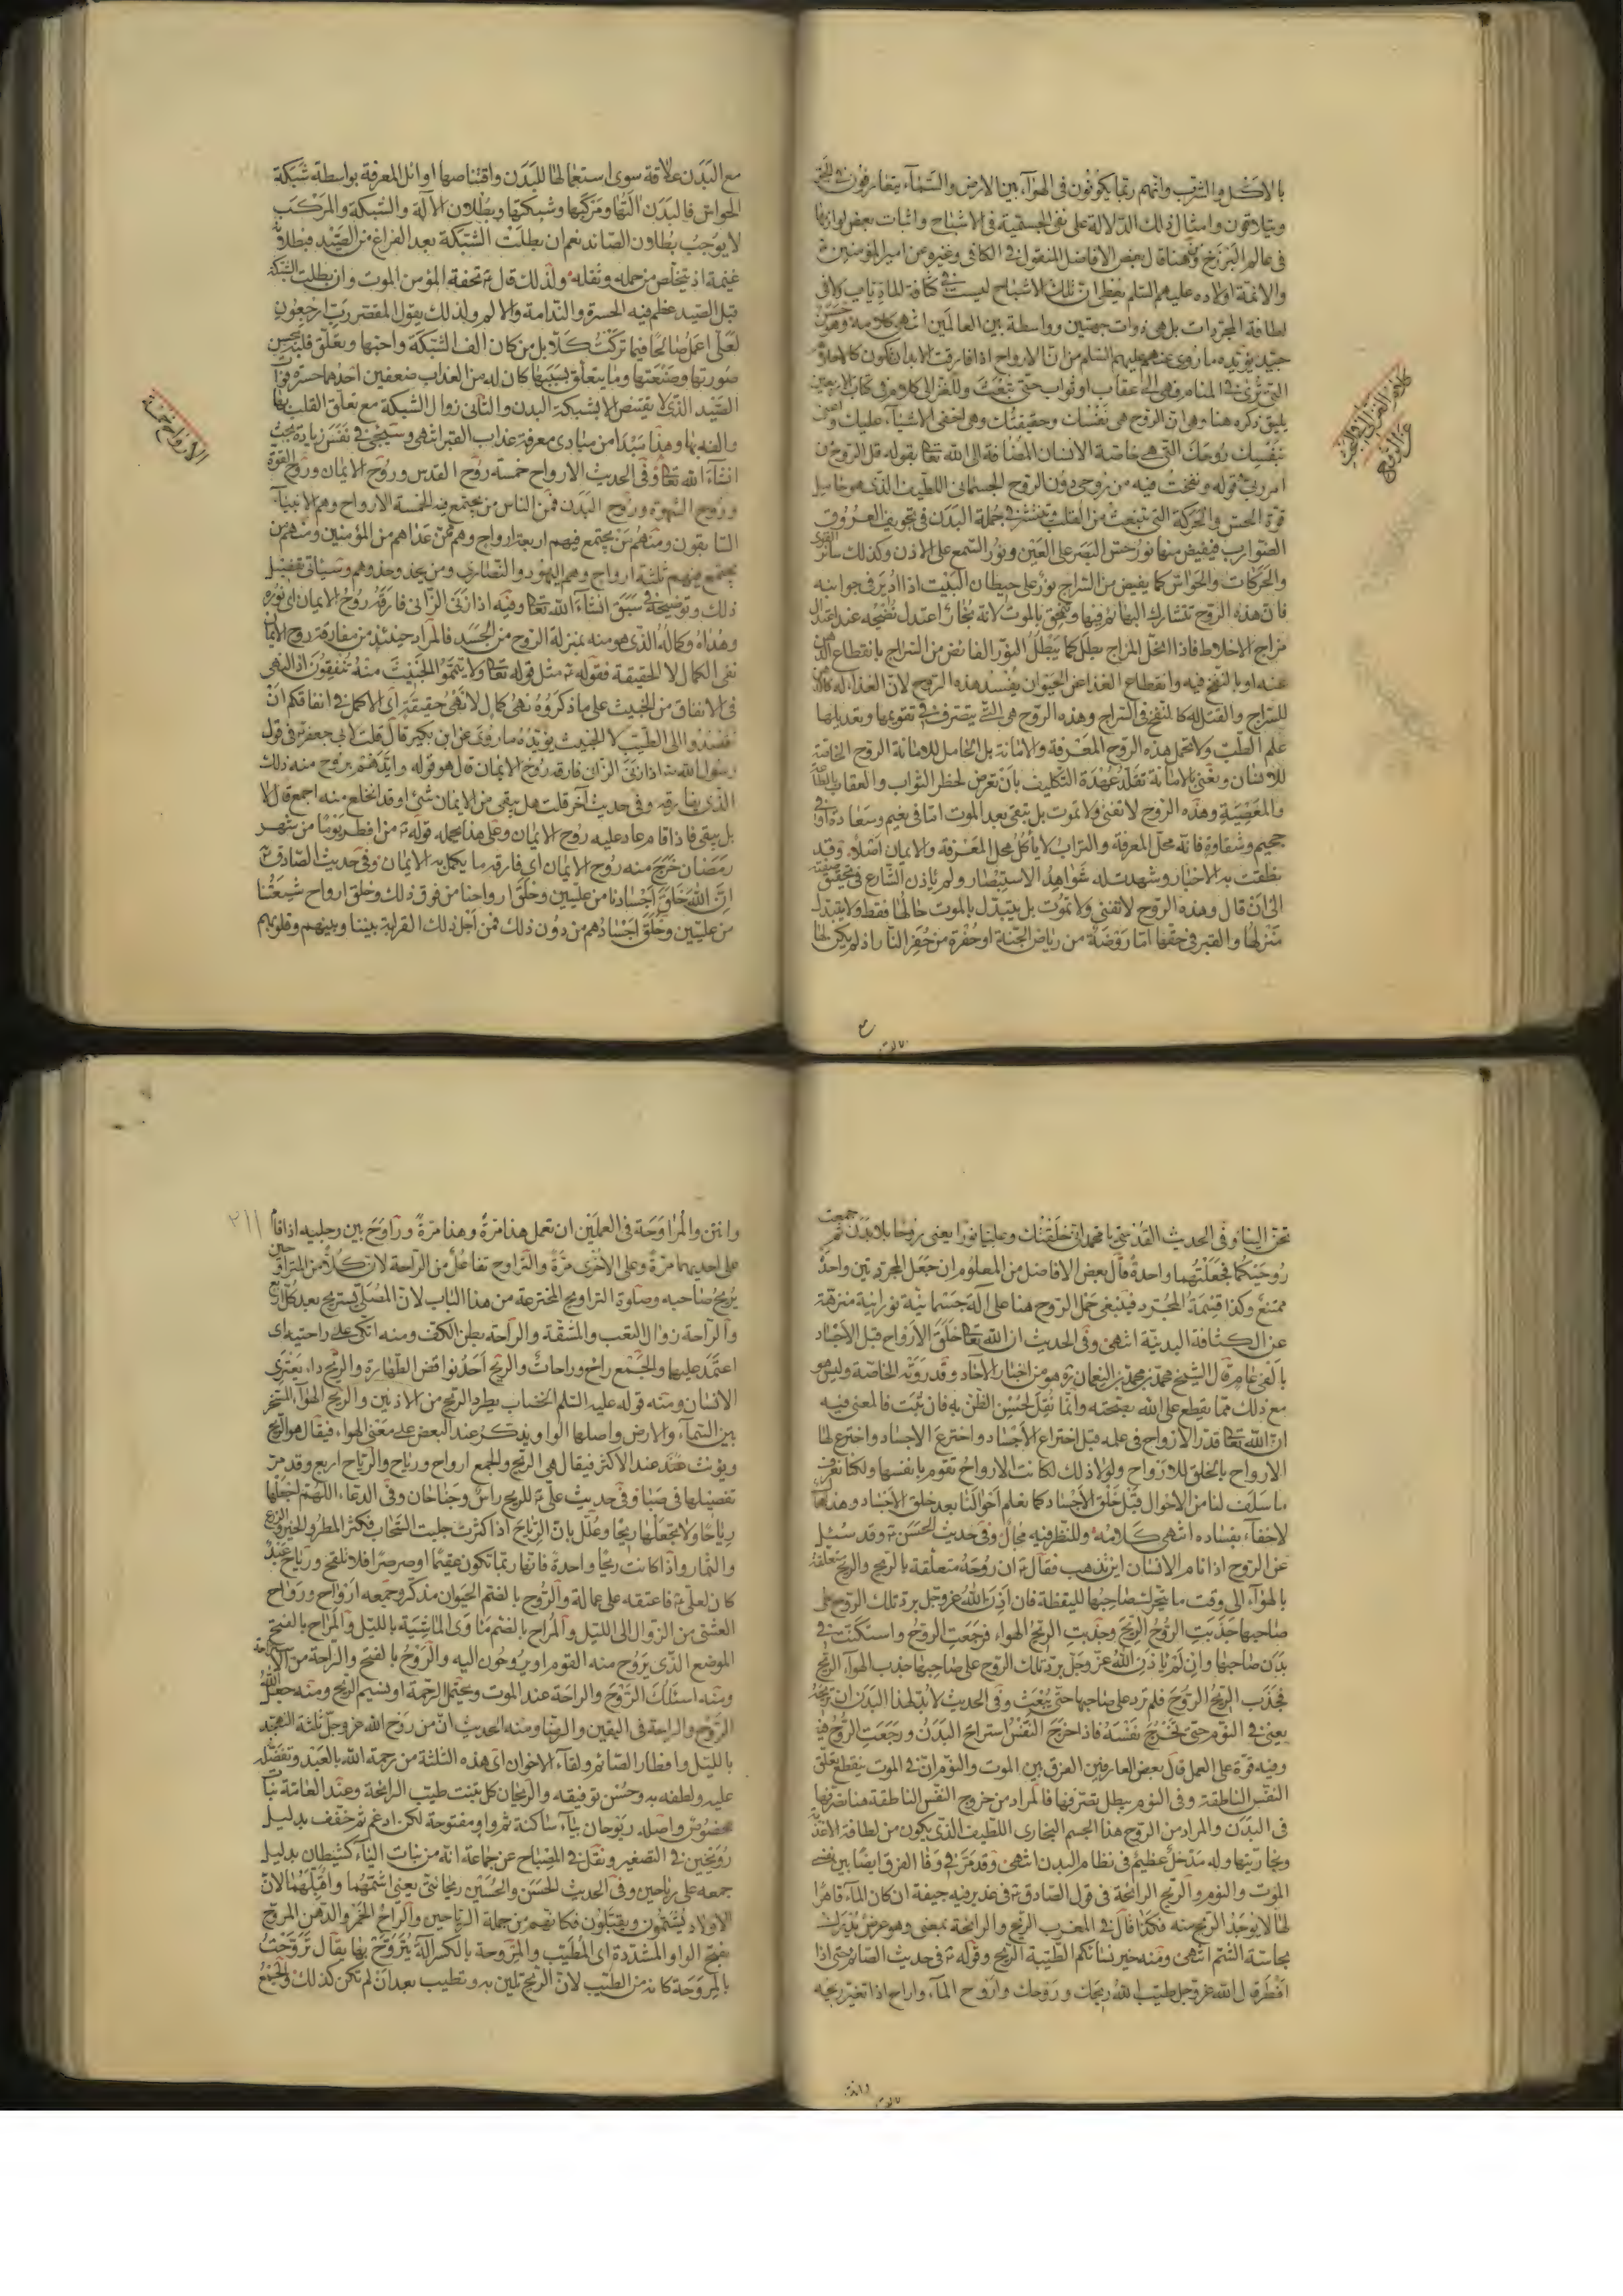 بالاكل والشرب وانهم ربما يكونون فى الهوآء بين الارض والسمآء يتعارفون فى الجو
ويتلاقون وامثال ذلك الدلالة على نفى الجسمية فى الاشباح واثبات بعض لوازمها
فى عالم البرزخ وهنا قال بعض الافاضل المنقول فى الكافى وغيره عن امير المؤمنين
والائمة اولاده عليهم السلم يعطى ان تلك الاشباح ليست فى كثافة الماديات ولا فى
لطافة المجردات بل هى ذوات جهتين وواسطة بين العالمين انتهى كلامه وهو حسن
جيد يؤيده ما روى عنهم عليهم السلم من ان الارواح اذا فارقت الابدان تكون كالاحلام
التى ترى فى المنام فهى الى عقاب او ثواب حتى تبعث وللغزالى كلام فى كتاب الاربعين
يليق ذكره هنا وهو ان الروح هى نفسك وحقيقتك وهى اخفى الاشيآء عليك
نفسك روحك التى هى خاصة الانسان المضافة الى الله تعالى بقوله قل الروح من
امر ربى وقوله ونفخت فيه من روحى دون الروح الجسمانى اللطيف الذى هو حامل
قوة الحس والحركة التى تنبعث من القلب وتنتشر فى جملة البدن فى تجويف العروق
الضوارب فيفيض منها نور حس البصر على العين ونور السمع على الاذن وكذلك سائر القوى
والحركات والحواس كما يفيض من السراج نور على حيطان البيت اذا ادير فى جوانبه
فان هذه الروح تتشارك البهائم فيها وتمحق بالموت لانه بخار اعتدل نضجه عند اعتدال
مزاج الاخلاط فاذا انحل المزاج بطل كما يبطل النور الفائض من السراج بانقطاع الدهن
عنه او بالنفخ فيه وانقطاع الغذا عن الحيوان يفسد هذه الروح لان الغذاء له كالدهن
للسراج والقتل له كالنفخ فى السراج وهذه الروح هى التى يتصرف فى تقويمها وتعديلها
علم الطب ولا تحمل هذه الروح المعرفة والامانة بل الحامل للامانة الروح الخاصة
للانسان ونعنى بالامانة تقلد عهدة التكليف بان تعرض لخطر الثواب والعقاب بالطاعة
والمعصية وهذه الروح لا تفنى ولا تموت بل تبقى بعد الموت اما فى نعيم وسعادة او فى
جحيم وشقاوة فانه محل المعرفة والتراب لا يأكل محل المعرفة والايمان اصلا وقد
نطقت به الاخبار وشهدت له شواهد الاستبصار ولم يأذن الشارع فى تحقيق صفته
الى ان قال وهذه الروح لا تفنى ولا تموت بل يتبدل بالموت حالها فقط ولا يتبدل
منزلها والقبر فى حقها اما روضة من رياض الجنة او حفرة من حفر النار اذ لم يكن لها
مع البدن علاقة سوى استعمالها للبدن واقتناصها اوائل المعرفة بواسطة شبكة
الحواس فالبدن آلتها ومركبها وشبكتها وبطلان الالة والشبكة والمركب
لا يوجب بطلان الصائد نعم ان بطلت الشبكة بعد الفراغ من الصيد فبطلانه
غنيمة اذ يتخلص من حمله وثقله ولذلك قال ع تحفة المؤمن الموت وان بطلت الشبكة
قبل الصيد عظم فيه الحسرة والندامة والالم ولذلك يقول المقصر رب ارجعون
لعلى اعمل صالحا فيما تركت كلا بل من كان الف الشبكة واحبها وتعلق قلبه بحسن
صورتها وصنعتها وما يتعلق بسببها كان له من العذاب ضعفين احدهما حسرة فوات
الصيد الذى لا يقتنص الا بشبكة البدن والثانى زوال الشبكة مع تعلق القلب بها
والفه بها وهذا مبدأ من مبادى معرفة عذاب القبر انتهى وسيجئ فى نفس زيادة بحث
انشاء الله تعالى وفى الحديث الارواح خمسة روح القدس وروح الايمان وروح القوة
وروح الشهوة وروح البدن فمن الناس من يجتمع فيه الخمسة الارواح وهم الانبيآء
السابقون ومنهم من يجتمع فيهم اربعة ارواح وهم من عداهم من المؤمنين ومنهم من
يجتمع فيهم ثلثة ارواح وهم اليهود والنصارى ومن يحذو حذوهم وسياتى تفصيل
ذلك وتوضيحه فى سبق انشآء الله تعالى وفيه اذا زنى الزانى فارقه روح الايمان اى نوره
وهداه وكماله الذى هو منه بمنزلة الروح من الجسد فالمراد حينئذ من مفارقة روح الايمان
نفى الكمال لا الحقيقة فقوله ع مثل قوله تعالى ولا تيمموا الخبيث منه تنفقون اذ النهى
فى الانفاق من الخبيث على ما ذكروه نهى كمال لا نهى حقيقة اى الاكمل فى انفاقكم ان
تقصدوا الى الطيب لا الخبيث يؤيده ما روى عن ابن بكير قال قلت لابى جعفر ع فى قول
رسول الله ص اذا زنى الزانى فارقه روح الايمان قال هو قوله وايدهم بروح منه ذلك
الذى يفارقه وفى حديث آخر قلت هل يبقى من الايمان شئ او قد انخلع منه اجمع قال لا
بل يبقى فاذا قام عاد عليه روح الايمان وعلى هذا يحمل قوله ع من افطر يوما من شهر
رمضان خرج منه روح الايمان اى فارقه ما يكمل به الايمان وفى حديث الصادق ع
ان الله خلق اجسادنا من عليين وخلق ارواحنا من فوق ذلك وخلق ارواح شيعتنا
من عليين وخلق اجسادهم من دون ذلك فمن اجل ذلك القرابة بيننا وبينهم وقلوبهم
الارواح خمسة
تحن الينا وفى الحديث القدسى يا محمد انى خلقتك وعليا نورا يعنى روحا بلا بدن ثم جمعت
روحيكما فجعلتهما واحدة قال بعض الافاضل من المعلوم ان جعل المجردين واحدا
ممتنع وكذا قسمة المجرد فينبغى حمل الروح هنا على آلة جسمانية نورانية منزهة
عن الكثافة البدنية انتهى وفى الحديث ان الله تعالى خلق الارواح قبل الاجساد
بالفى عام قال الشيخ محمد بن محمد بن النعمان ره هو من اخبار الآحاد وقد روته الخاصة وليس هو
مع ذلك مما يقطع على الله بصحته وانما نقل لحسن الظن به فان ثبت فالمعنى فيه
ان الله تعالى قدر الارواح فى علمه قبل اختراع الاجساد واخترع الاجساد واخترع لها
الارواح بالخلق للارواح ولولا ذلك لكانت الارواح تقوم بانفسها ولكنا نعرف
ما سلف لنا من الاحوال قبل خلق الاجساد كما نعلم احوالنا بعد خلق الاجساد وهذا محال
لا خفآء بفساده انتهى كلامه وللنظر فيه مجال وفى حديث الحسن ع وقد سئل
عن الروح اذا نام الانسان اين تذهب فقال ع ان روحه متعلقة بالريح والريح متعلقة
بالهوآء الى وقت ما يتحرك صاحبها لليقظة فان اذن الله عز وجل برد تلك الروح على
صاحبها جذبت الروح الريح وجذبت الريح الهواء فرجعت الروح واسكنت فى
بدن صاحبها وان لم ياذن الله عز وجل برد تلك الروح على صاحبها جذب الهوآء الريح
فجذب الريح الروح فلم ترد على صاحبها حتى يبعث وفى الحديث لابد لهذا البدن ان تريحه
يعنى فى النوم حتى تخرج نفسه فاذا خرج النفس استراح البدن ورجعت الروح فيه
وفيه قوة على العمل قال بعض العارفين الفرق بين الموت والنوم ان فى الموت ينقطع تعلق
النفس الناطقة وفى النوم يبطل تصرفها فالمراد من خروج النفس الناطقة هنا تصرفها
فى البدن والمراد من الروح هذا الجسم البخارى اللطيف الذى يكون من لطافة الاغذية
وبخاريتها وله مدخل عظيم فى نظام البدن انتهى وقد مر فى وفا الفرق ايضا بين نفس
الموت والنوم والريح الرائحة فى قول الصادق ع فى غدير فيه جيفة ان كان المآء قاهرا
لها لا يوجد الريح منه فكذا قال فى المغرب الريح والرائحة بمعنى وهو عرض يدرك
بحاسة الشم انتهى ومنه خير نسائكم الطيبة الريح وقوله ع فى حديث الصائم حتى اذا
افطر قال الله عز وجل طيب الله ريحك وروحك واروح المآء واراح اذا تغير ريحه
وانتن والمراوحة فى العملين ان تعمل هذا مرة وهذا مرة وراوح بين رجليه اذا قام
على احديهما مرة وعلى الاخرى مرة والتراوح تفاعل من الراحة لان كلا من المتراوحين
يريح صاحبه وصلوة التراويح المخترعة من هذا الباب لان المصلى يستريح بعد كل اربع
والراحة زوال التعب والمشقة والراحة بطن الكف ومنه اتكى على راحتيه اى
اعتمد عليهما والجمع راح وراحات والريح احد نواقض الطهارة والريح داء يعترى
الانسان ومنه قوله عليه السلم الخضاب يطرد الريح من الاذنين والريح الهوآء المسخر
بين السمآء والارض واصلها الواو ويذكر عند البعض على معنى الهواء فيقال هو الريح
ويؤنث عند الاكثر فيقال هى الريح والجمع ارواح ورياح والرياح اربع وقد مر
تفصيلها فى صبا وفى حديث على ع للريح راس وجناحان وفى الدعاء اللهم اجعلها
رياحا ولا تجعلها ريحا وعلل بان الرياح اذا كثرت جلبت السحاب فكثر المطر والخير والزرع
والثمار واذا كانت ريحا واحدة فانها ربما تكون عقيما او صرصرا فلا تلقح ورياح عبد
كان لعلى ع فاعتقه على عمالة والروح بالضم الحيوان مذكر وجمعه ارواح ورواح
العشى من الزوال الى الليل والمراح بالضم مأوى الماشية بالليل والمراح بالفتح
الموضع الذى يروح منه القوم او يروحون اليه والروح بالفتح والراحة من الاستراحة
ومنه اسئلك الروح والراحة عند الموت ويحتمل الرحمة او نسيم الريح ومنه جعل الله
الروح والراحة فى اليقين والرضا ومنه الحديث ان من روح الله عز وجل ثلثة التهجد
بالليل وافطار الصائم ولقآء الاخوان اى هذه الثلثة من رحمة الله بالعبد وتفضله
عليه ولطفه به وحسن توفيقه والريحان كل نبت طيب الرائحة وعند العامة نبات
مخصوص واصله ريوحان بيآء ساكنة ثم واو مفتوحة لكن ادغم ثم خفف بدليل
رويحين فى التصغير ونقل فى المصباح عن جماعة انه من بنات اليآء كشيطان بدليل
جمعه على رياحين وفى الحديث الحسن والحسين ريحانتى يعنى اشمهما واقبلهما لان
الاولاد يشمون ويقبلون فكانهم من جملة الرياحين والراح الخمر والدهن المروح
بفتح الواو المشددة اى المطيب والمروحة بالكسر آلة يتروح بها يقال تروحت
بالمروحة كانه من الطيب لان الريح تلين به وتطيب بعد ان لم تكن كذلك والجمع